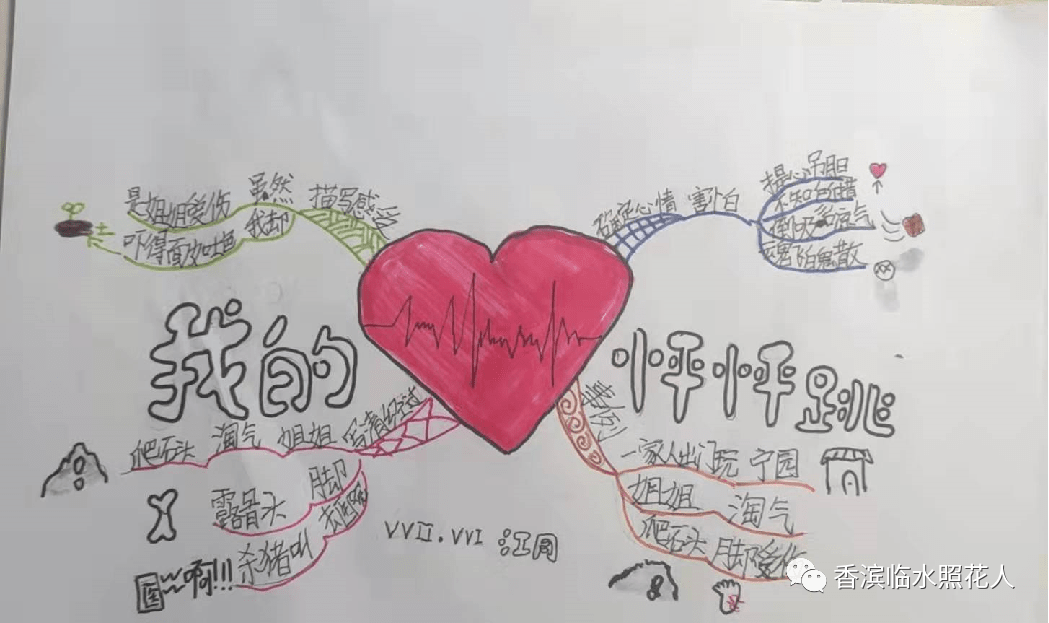 描写感
虽然
是姐姐受伤
我却
吓得面如土色
确定心情
害怕
提心吊胆
不知所措
倒吸一口凉气
魂飞魄散
我的心怦怦跳
写清经过
姐姐
淘气
爬石头
脚
露骨头
去医院
杀猪叫
啊!!!
事例
一家人出门玩 宁园
姐姐 淘气
爬石头 脚受伤
香滨临水照花人